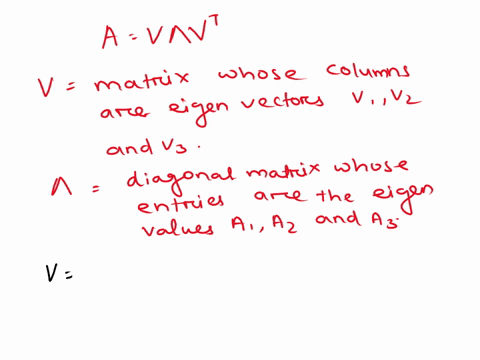 A = VΛVᵀ
V = matrix whose columns
are eigen vectors V₁, V₂
and V₃.
Λ = diagonal matrix whose
entries are the eigen
values A₁, A₂ and A₃.
V =